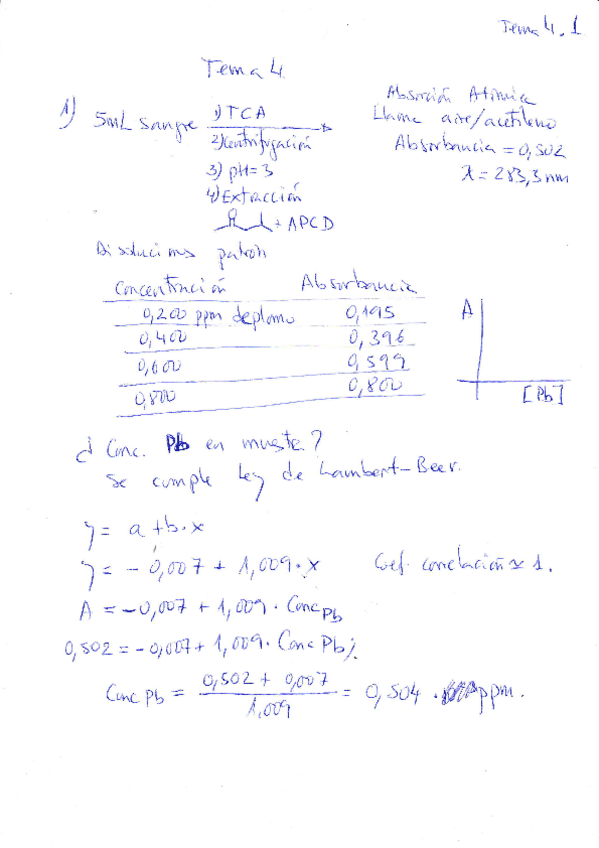 Tema 4.1
Tema 4
1) 5mL sangre 1) TCA
2) Centrifugación
3) pH=3
4) Extracción
+ APCD
Absorción Atómica
Llama aire/acetileno
Absorbancia = 0,502
λ = 283,3 nm
Disoluciones patrón
Concentración Absorbancia
0,200 ppm de plomo 0,195
0,400 0,396
0,600 0,599
0,800 0,800
A
[Pb]
¿ Conc. Pb en muestra?
Se cumple Ley de Lambert-Beer.
y = a + b·x
y = -0,007 + 1,009·x Coef. correlación ≃ 1.
A = -0,007 + 1,009 · Conc Pb
0,502 = -0,007 + 1,009 · Conc Pb;
Conc Pb = 0,502 + 0,007 / 1,009 = 0,504 ppm.